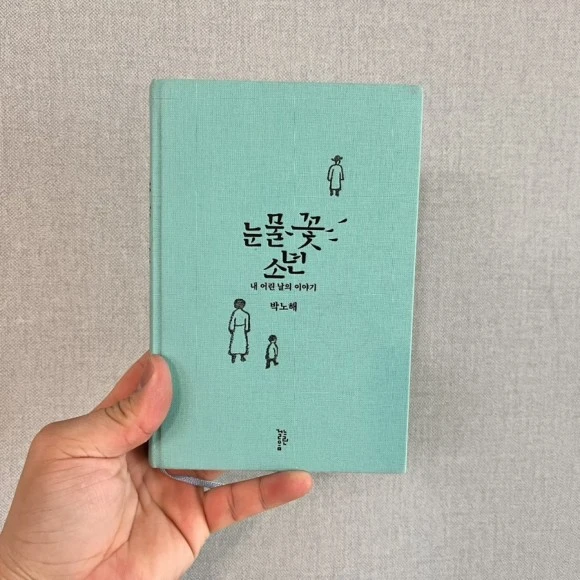 눈물꽃
소년
내 어린 날의 이야기
박노해
느린
걸음